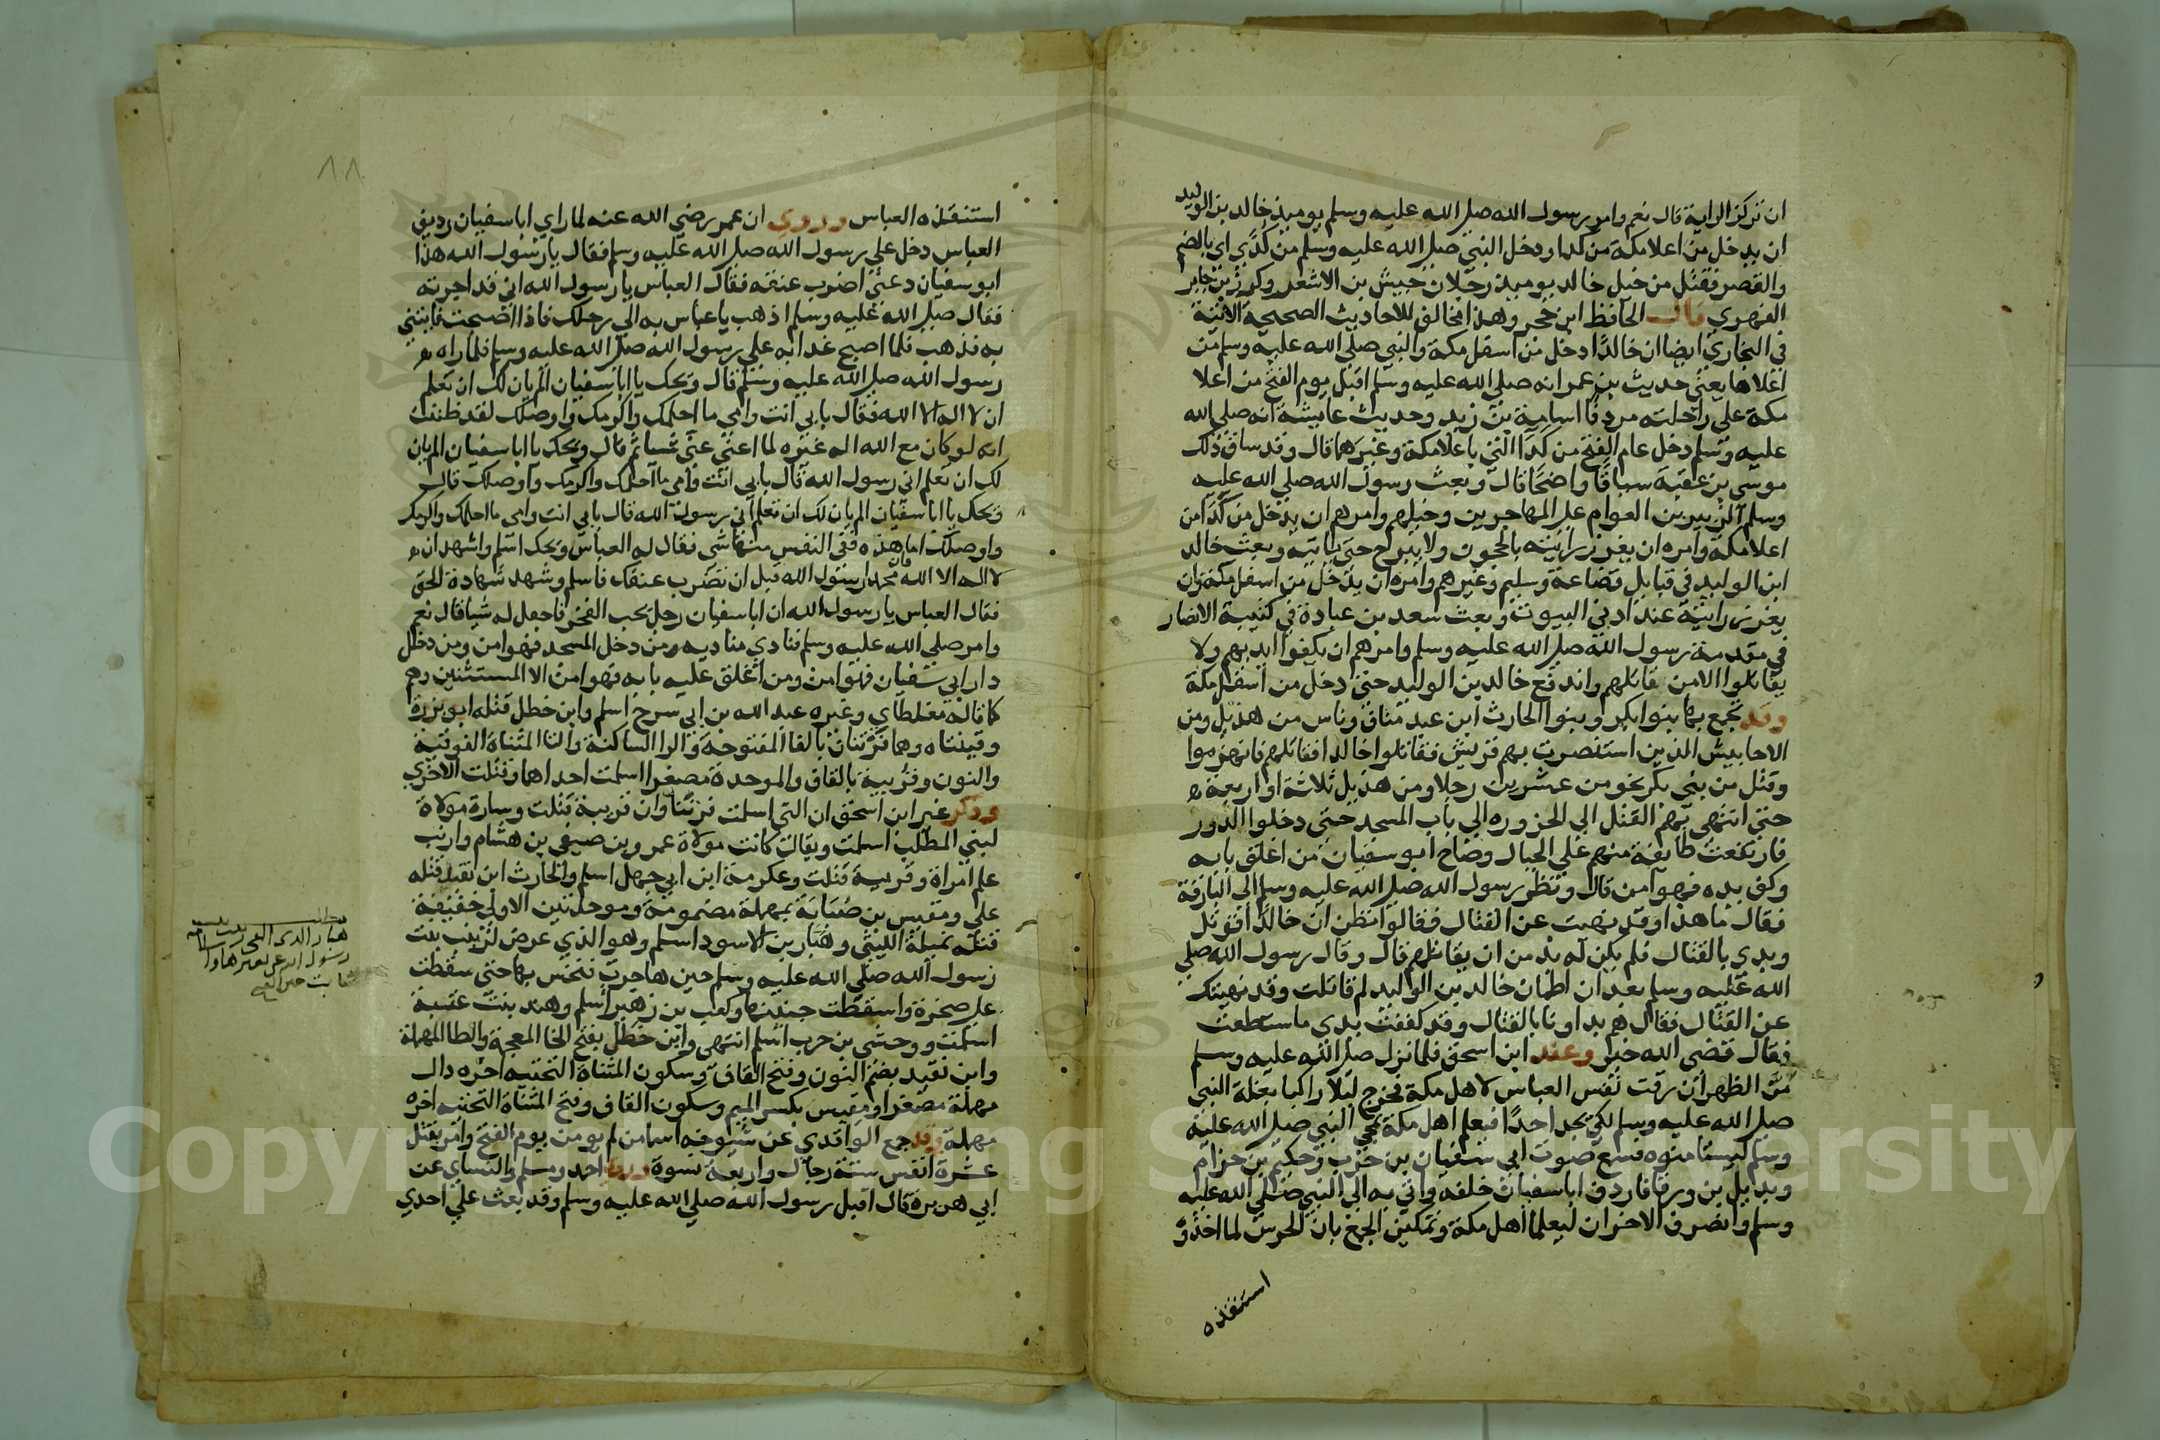 ان تركز الراية قال نعم وامر رسول الله صلى الله عليه وسلم يوميذ خالد بن الوليد
ان يدخل من اعلا مكة من كدا ودخل النبي صلى الله عليه وسلم من كدي اي بالضم
والقصر فقتل من خيل خالد يوميذ رجلان حبيش بن الاشعر وكرز بن جابر
الفهري قال الحافظ ابن حجر وهذا مخالف للاحاديث الصحيحة الاتية
في البخاري ايضا ان خالدا دخل من اسفل مكة والنبي صلى الله عليه وسلم من
اعلاها يعني حديث بن عمر انه صلى الله عليه وسلم اقبل يوم الفتح من اعلا
مكة على راحلته مردفا اسامة بن زيد وحديث عايشة انه صلى الله
عليه وسلم دخل عام الفتح من كدا التي باعلا مكة وغيرهما قال وقد ساق ذلك
موسى بن عقبة سياقا واضحا قال وبعث رسول الله صلى الله عليه
وسلم الزبير بن العوام على المهاجرين وخيلهم وامرهم ان يدخل من كدا من
اعلا مكة وامره ان يغرز رايته بالحجون ولا يبرح حتى ياتيه وبعث خالد
ابن الوليد في قبايل قضاعة وسليم وغيرهم وامره ان يدخل من اسفل مكة وان
يغرز رايته عند ادني البيوت وبعث سعد بن عبادة في كتيبة الانصار
في مقدمة رسول الله صلى الله عليه وسلم وامرهم ان يكفوا ايديهم ولا
يقاتلوا الا من يقاتلهم واندفع خالد بن الوليد حتى دخل من اسفل مكة
وقد تجمع بها بنوا بكر وبنوا الحارث ابن عبد مناف وناس من هذيل ومن
الاحابيش الذين استنصرت بهم قريش فقاتلوا خالدا فقاتلهم فانهزموا
وقتل من بني بكر نحو من عشرين رجلا ومن هذيل ثلاثة او اربعة
حتى انتهى بهم القتل الى الحزوره الي باب المسجد حتى دخلوا الدور
فارتفعت طايفة منهم علي الجبال وصاح ابو سفيان من اغلق بابه
وكف يده فهو آمن قال ونظر رسول الله صلى الله عليه وسلم الى البارقة
فقال ما هذا وقد نهيت عن القتال فقالوا نظن ان خالدا قوتل
وبدي بالقتال فلم يكن له بد من ان يقاتلهم قال وقال رسول الله صلى
الله عليه وسلم بعد ان اطمان خالد بن الوليد لم قاتلت وقد نهيتك
عن القتال فقال هم بداونا بالقتال وقد كففت يدي ما استطعت
فقال قضى الله خير وعند ابن اسحق فلما نزل صلى الله عليه وسلم
مر الظهران رقت نفس العباس لاهل مكة فخرج ليلا راكبا بغلة النبي
صلى الله عليه وسلم لكي يجد احدا فيعلم اهل مكة بمجي النبي صلى الله عليه
وسلم ليستامنوه فسمع صوت ابي سفيان بن حرب وحكيم بن حزام
وبديل بن ورقا فاردف ابا سفيان خلفه واتي به الى النبي صلى الله عليه
وسلم وانصرف الاخران ليعلما اهل مكة ويمكن الجمع بان الحرس لما اخذوه
استنقذه
٨٨
استنقذه العباس وروي ان عمر رضي الله عنه لما راي ابا سفيان رديف
العباس دخل علي رسول الله صلى الله عليه وسلم فقال يا رسول الله هذا
ابو سفيان دعني اضرب عنقه فقال العباس يا رسول الله اني قد اجرته
فقال صلى الله عليه وسلم اذهب يا عباس به الي رحلك فاذا اصبحت فاتني
به فذهب فلما اصبح غدا به علي رسول الله صلى الله عليه وسلم فلما راه
رسول الله صلى الله عليه وسلم قال ويحك يا ابا سفيان الم يان لك ان تعلم
ان لا اله الا الله فقال بابي انت وامي ما احلمك واكرمك واوصلك لقد ظننت
انه لو كان مع الله اله غيره لما اغنى عني شيا ثم قال ويحك يا ابا سفيان الم يان
لك ان تعلم اني رسول الله قال بابي انت وامي ما احلمك واكرمك واوصلك قال
ويحك يا ابا سفيان الم يان لك ان تعلم اني رسول الله قال بابي انت وامي ما احلمك واكرمك
واوصلك اما هذه ففي النفس منها شي فقال له العباس ويحك اسلم واشهد ان
لا اله الا الله وان محمدا رسول الله قبل ان تضرب عنقك فاسلم وشهد شهادة الحق
فقال العباس يا رسول الله ان ابا سفيان رجل يحب الفخر فاجعل له شيا قال نعم
وامر صلى الله عليه وسلم فنادي مناديه ومن دخل المسجد فهو امن ومن دخل
دار ابي سفيان فهو امن ومن اغلق عليه بابه فهو امن الا المستثنين وهم
كما قاله مغلطاي وغيره عبد الله بن ابي سرح اسلم وابن خطل قتله ابو برزة
وقينتاه وهما فرتنا بالفا المفتوحة والرا الساكنة والتا المثناة الفوقية
والنون وقريبة بالقاف والموحدة مصغرا اسلمت احداهما وقتلت الاخرى
وذكر غير ابن اسحق ان التي اسلمت فرتنا وان قريبة قتلت وسارة مولاة
لبني المطلب اسلمت ويقال كانت مولاة عمرو بن صيفي بن هشام وارنب
علم امراة وقريبة قتلت وعكرمة ابن ابي جهل اسلم والحارث ابن نقيد قتله
علي ومقيس بن صبابة بمهملة مضمومة وموحدتين الاولى خفيفة
قتله نميلة الليثي وهبار بن الاسود اسلم وهو الذي عرض لزينب بنت
رسول الله صلى الله عليه وسلم حين هاجرت فنخس بها حتى سقطت
على صخرة واسقطت جنينها وكعب بن زهير اسلم وهند بنت عتبة
اسلمت ووحشي بن حرب اسلم انتهى وابن خطل بفتح الخا المعجمة والطا المهملة
وابن نقيد بضم النون وفتح القاف وسكون المثناة التحتيه اخره دال
مهملة مصغرا ومقيس بكسر الميم وسكون القاف وفتح المثناة التحتيه اخره
مهملة وقد جمع الواقدي عن شيوخه اسما من لم يومن يوم الفتح وامر بقتل
عشرة انفس ستة رجال واربعة نسوة وروى احمد ومسلم والنساي عن
ابي هريرة قال اقبل رسول الله صلى الله عليه وسلم وقد بعث علي احدي
Copyright King Saud University